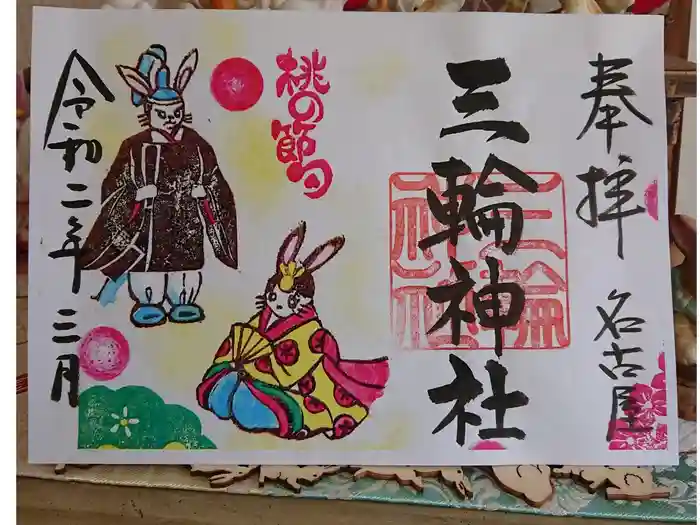 奉拝
名古屋
三輪神社
三輪
神社
桃の節句
令和二年三月